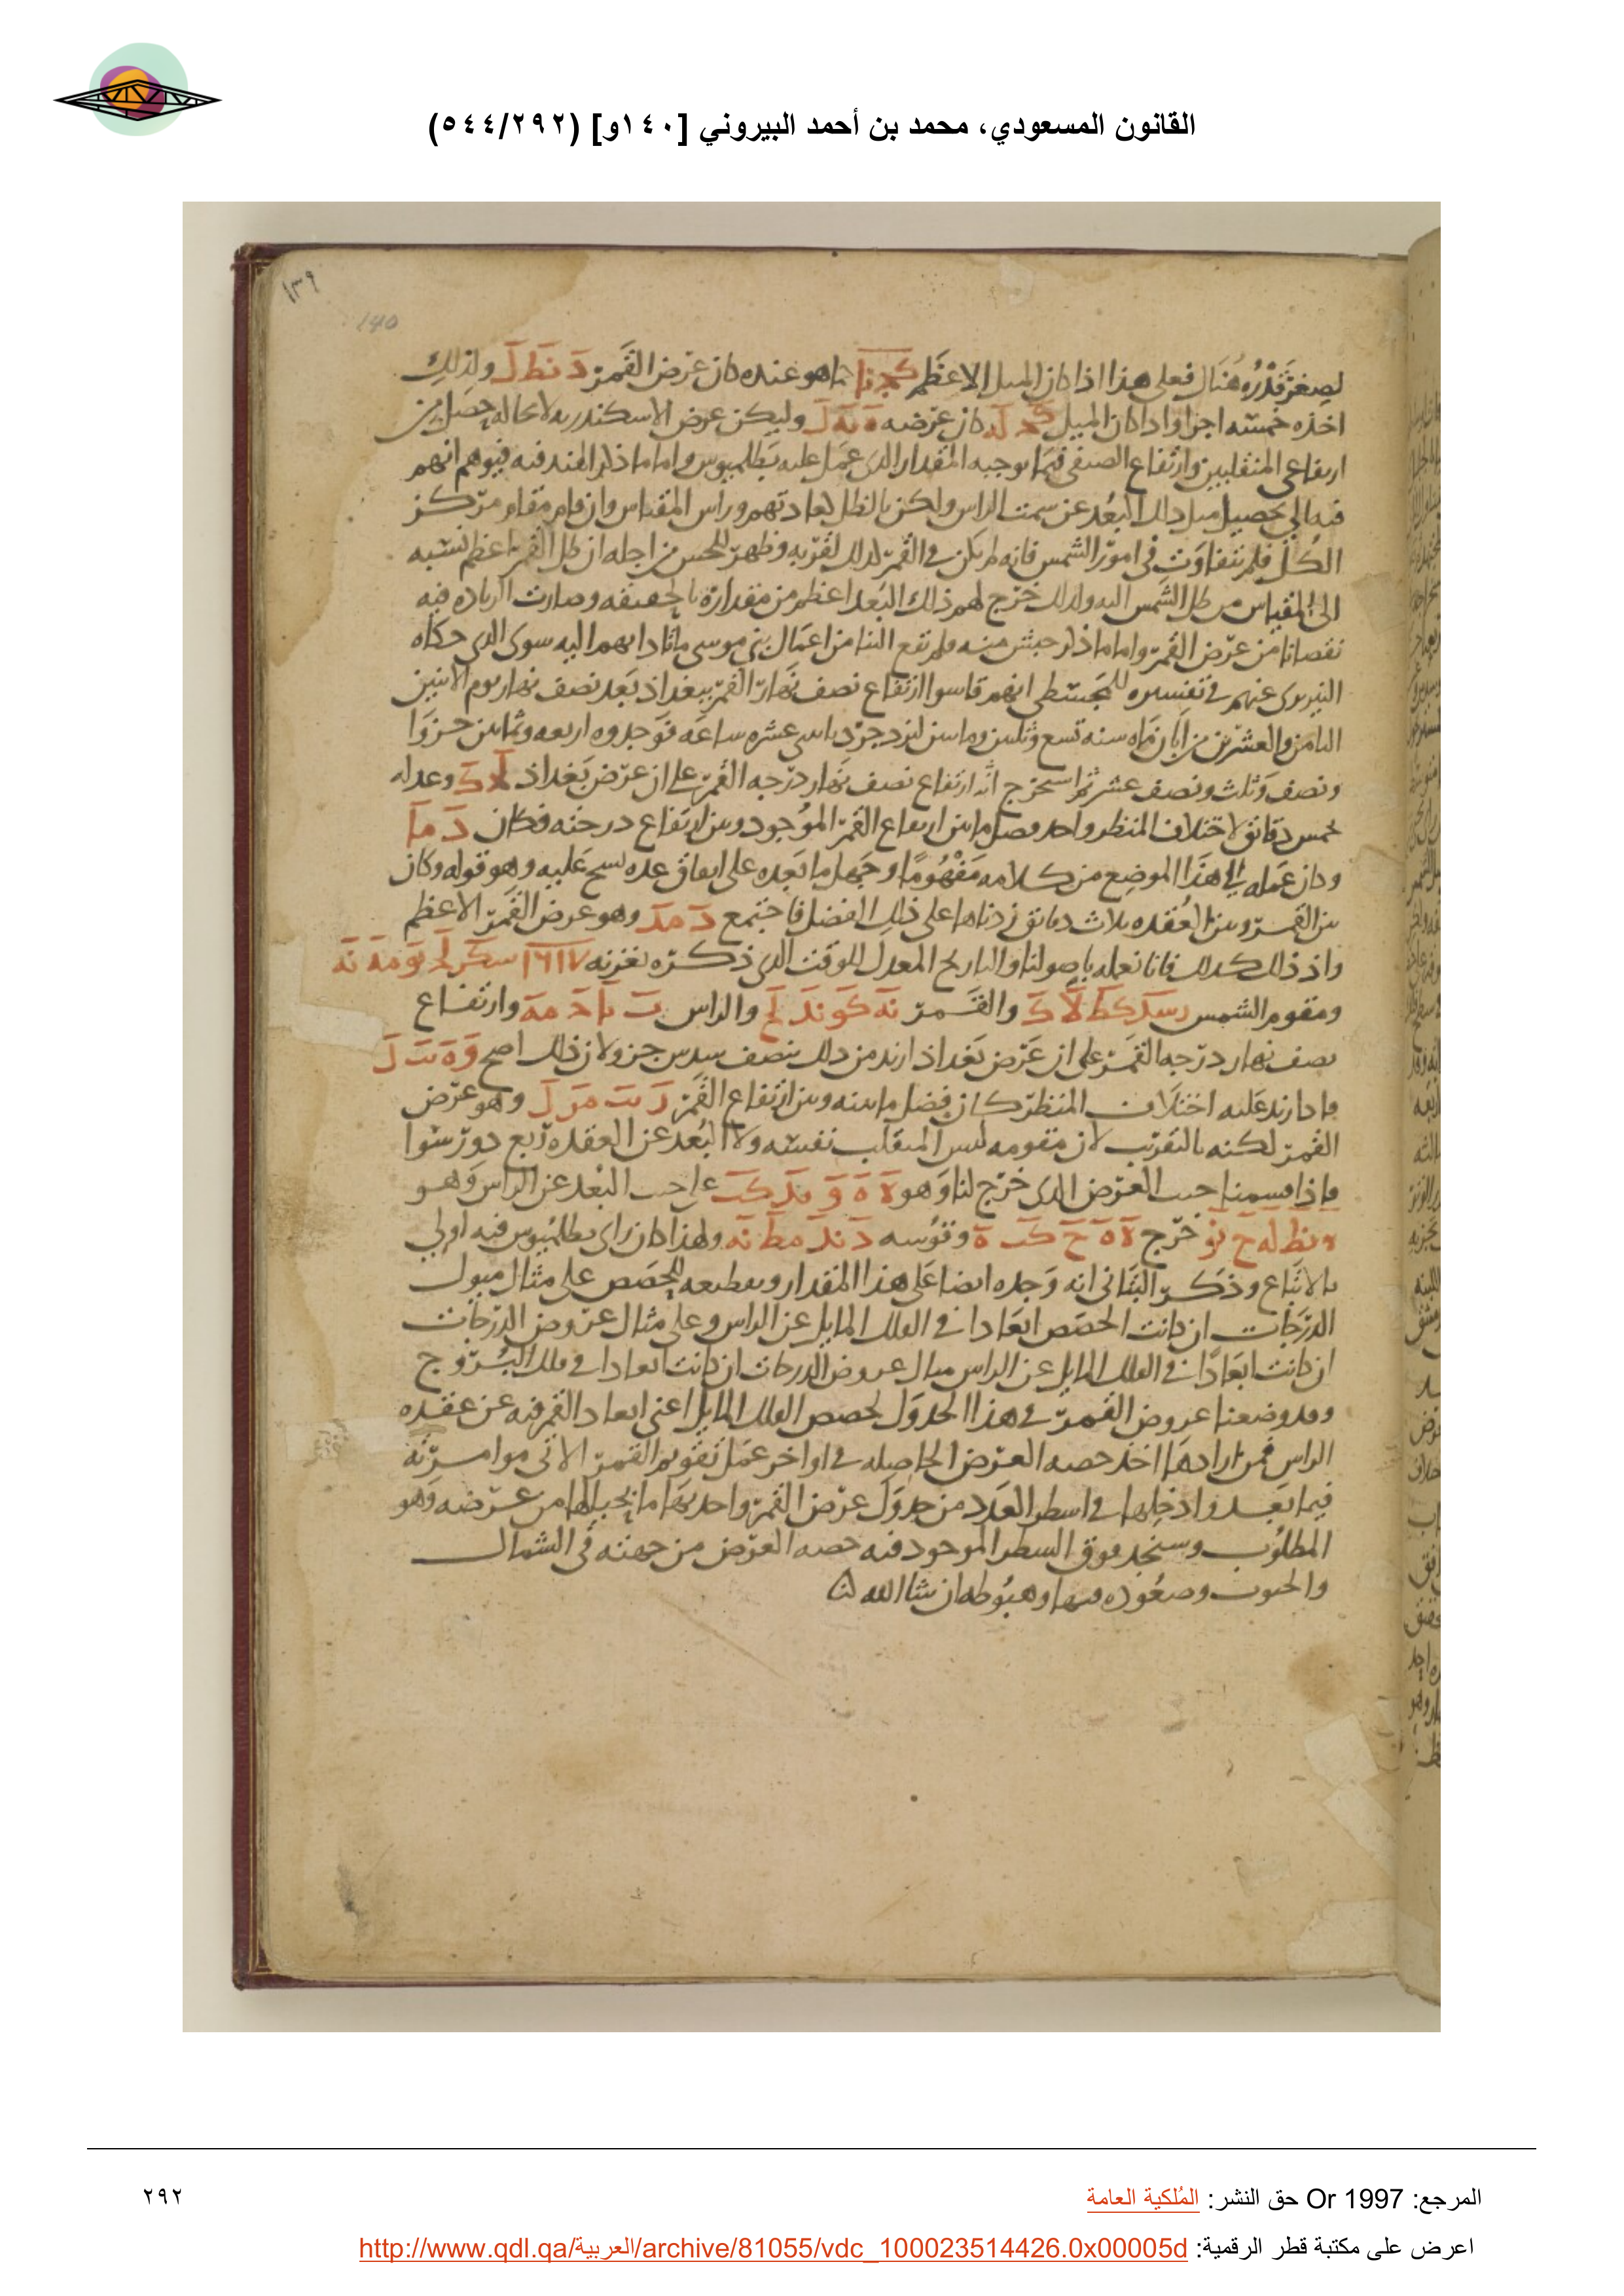 القانون المسعودي، محمد بن أحمد البيروني [١٤٠و] (٥٤٤/٢٩٢)
١٣٩
140
لصغر قدره هنال فعلى هذا اذا كان الميل الاعظم كج نا كما هو عنده كان عرض القمر د نط ل ولذلك
اخذه خمسة اجزا واذا كان الميل كج له كان عرضه ه يه ل وليكن عرض الاسكندريه لا محاله حصل من
ارتفاعي المنقلبين وارتفاع الصيفي فيما يوجبه المقدار الذي عمل عليه بطلميوس واما ما ذكر الهند فيه فيوهم انهم
فيه الى تحصيل مثل ذلك البعد عن سمت الراس ولكن بالظل لعادتهم وراس المقياس وان قام مقام مركز
الكل فلم يتفاوت في امور الشمس فانه لم يكن في القمر كذلك لقربه وظهر للحس من اجله ان ظل القمر اعظم نسبه
الى المقياس من ظل الشمس اليه ولذلك خرج لهم ذلك البعد اعظم من مقداره بالحقيقه وصارت الزياده فيه
نقصانا من عرض القمر واما ما ذكر حبش منه ولم تقع الينا من اعمال بني موسى ما تادا بهم اليه سوى الذي حكاه
النيريزي عنهم في تفسيره للمجسطي انهم قاسوا ارتفاع نصف نهار القمر ببغداذ بعد نصف نهار يوم الاثنين
الثامن والعشرين من ابان ماه سنه تسع وثلثين ومايتين ليزدجرد باثني عشره ساعه فوجدوه اربعه وثمانين جزوا
ونصف وثلث ونصف عشر ثم استخرج انه ارتفاع نصف نهار درجه القمر على ان عرض بغداذ لج ك وعدله
بخمس دقائق لاختلاف المنظر واخذ فضل ما بين ارتفاع القمر الموجود وبين ارتفاع درجته فكان د ما
وكان عمله الى هذا الموضع من كلامه مفهوما وجهل ما بعده على اتفاق عده نسخ عليه وهو قوله وكان
بين القمر وبين العقده ثلاث دقائق زدناها على ذلك الفضل فاجتمع د مد وهو عرض القمر الاعظم
واذ ذلك كذلك فانا نعمله باصولنا والتاريخ المعدل للوقت الذي ذكره بغزنه
ومقوم الشمس والقمر والراس وارتفاع
نصف نهار درجه القمر على ان عرض بغداذ ازيد من ذلك بنصف سدس جزو لان ذلك اصح
فاذا زيد عليه اختلاف المنظر كان فضل ما بينه وبين ارتفاع القمر وهو عرض
القمر لكنه بالتقريب لان مقومه ليس المنقلب نفسه ولا البعد عن العقده ربع دور سوا
فاذا قسمنا جيب العرض الذي خرج لنا وهو على جيب البعد عن الراس وهو
خرج وتقوسه ولهذا كان راى بطلميوس فيه اولى
بالاتباع وذكر البتاني انه وجده ايضا على هذا المقدار وتقطيعه للحصص على مثال ميول
الدرجات ان كانت الحصص ابعادا في الفلك المايل عن الراس وعلى مثال عروض الدرجات
ان كانت ابعادا في الفلك المايل عن الراس مثال عروض الدرجات ان كانت ابعادا في فلك البروج
وقد وضعنا عروض القمر في هذا الجدول لحصص الفلك المايل اعني ابعاد القمر فيه عن عقده
الراس فمن ارادها اخذ حصه العرض الحاصله في اواخر عمل تقويم القمر الاتي موامرته
فيما بعد وادخلها في اسطر العدد من جدول عرض القمر واخذ بها ما بحيالها من عرضه وهو
المطلوب وستجد فوق السطر الموجود فيه حصه العرض من جهته في الشمال
والجنوب وصعوده فيها وهبوطه ان شا الله
المرجع: Or 1997 حق النشر: المُلكية العامة
٢٩٢
اعرض على مكتبة قطر الرقمية: http://www.qdl.qa/العربية/archive/81055/vdc_100023514426.0x00005d